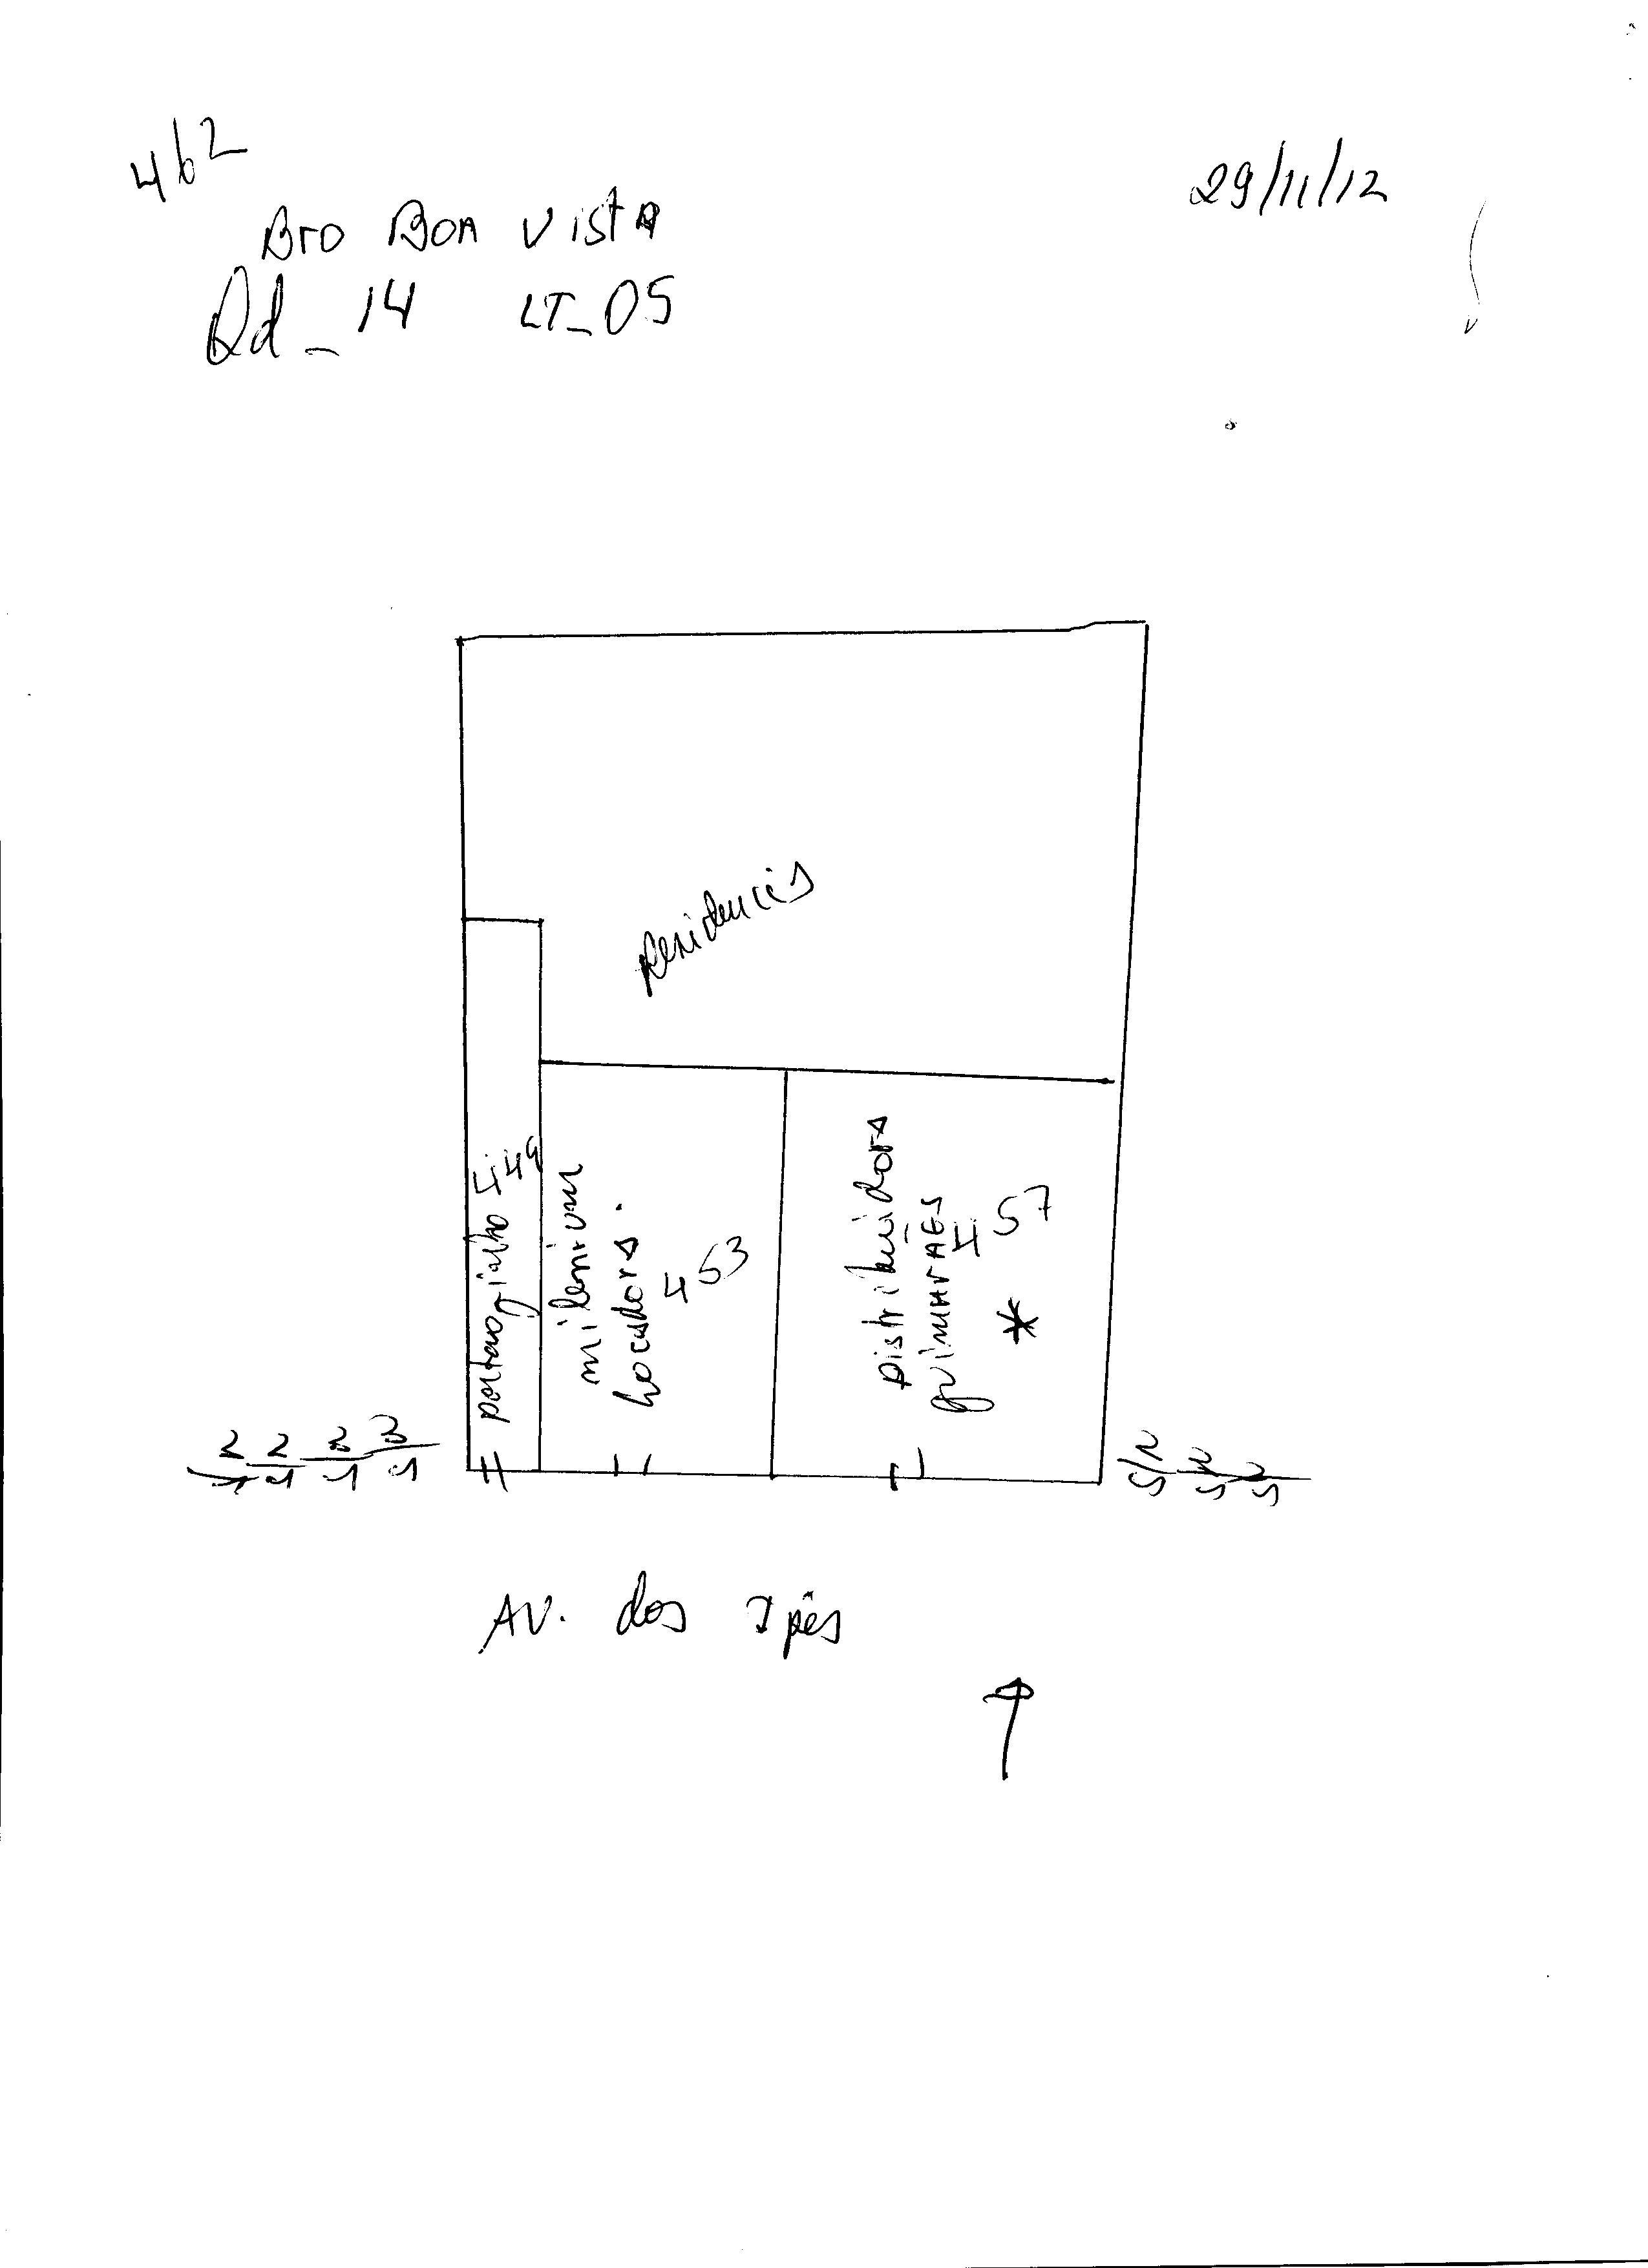 462
29/11/12
Bro Boa Vista
Qd_14 LT_05
Residencis
portaozinho 449
milenium
Locadora.
453
Distribuidora
guimarães
457
*
AV. dos Ipês